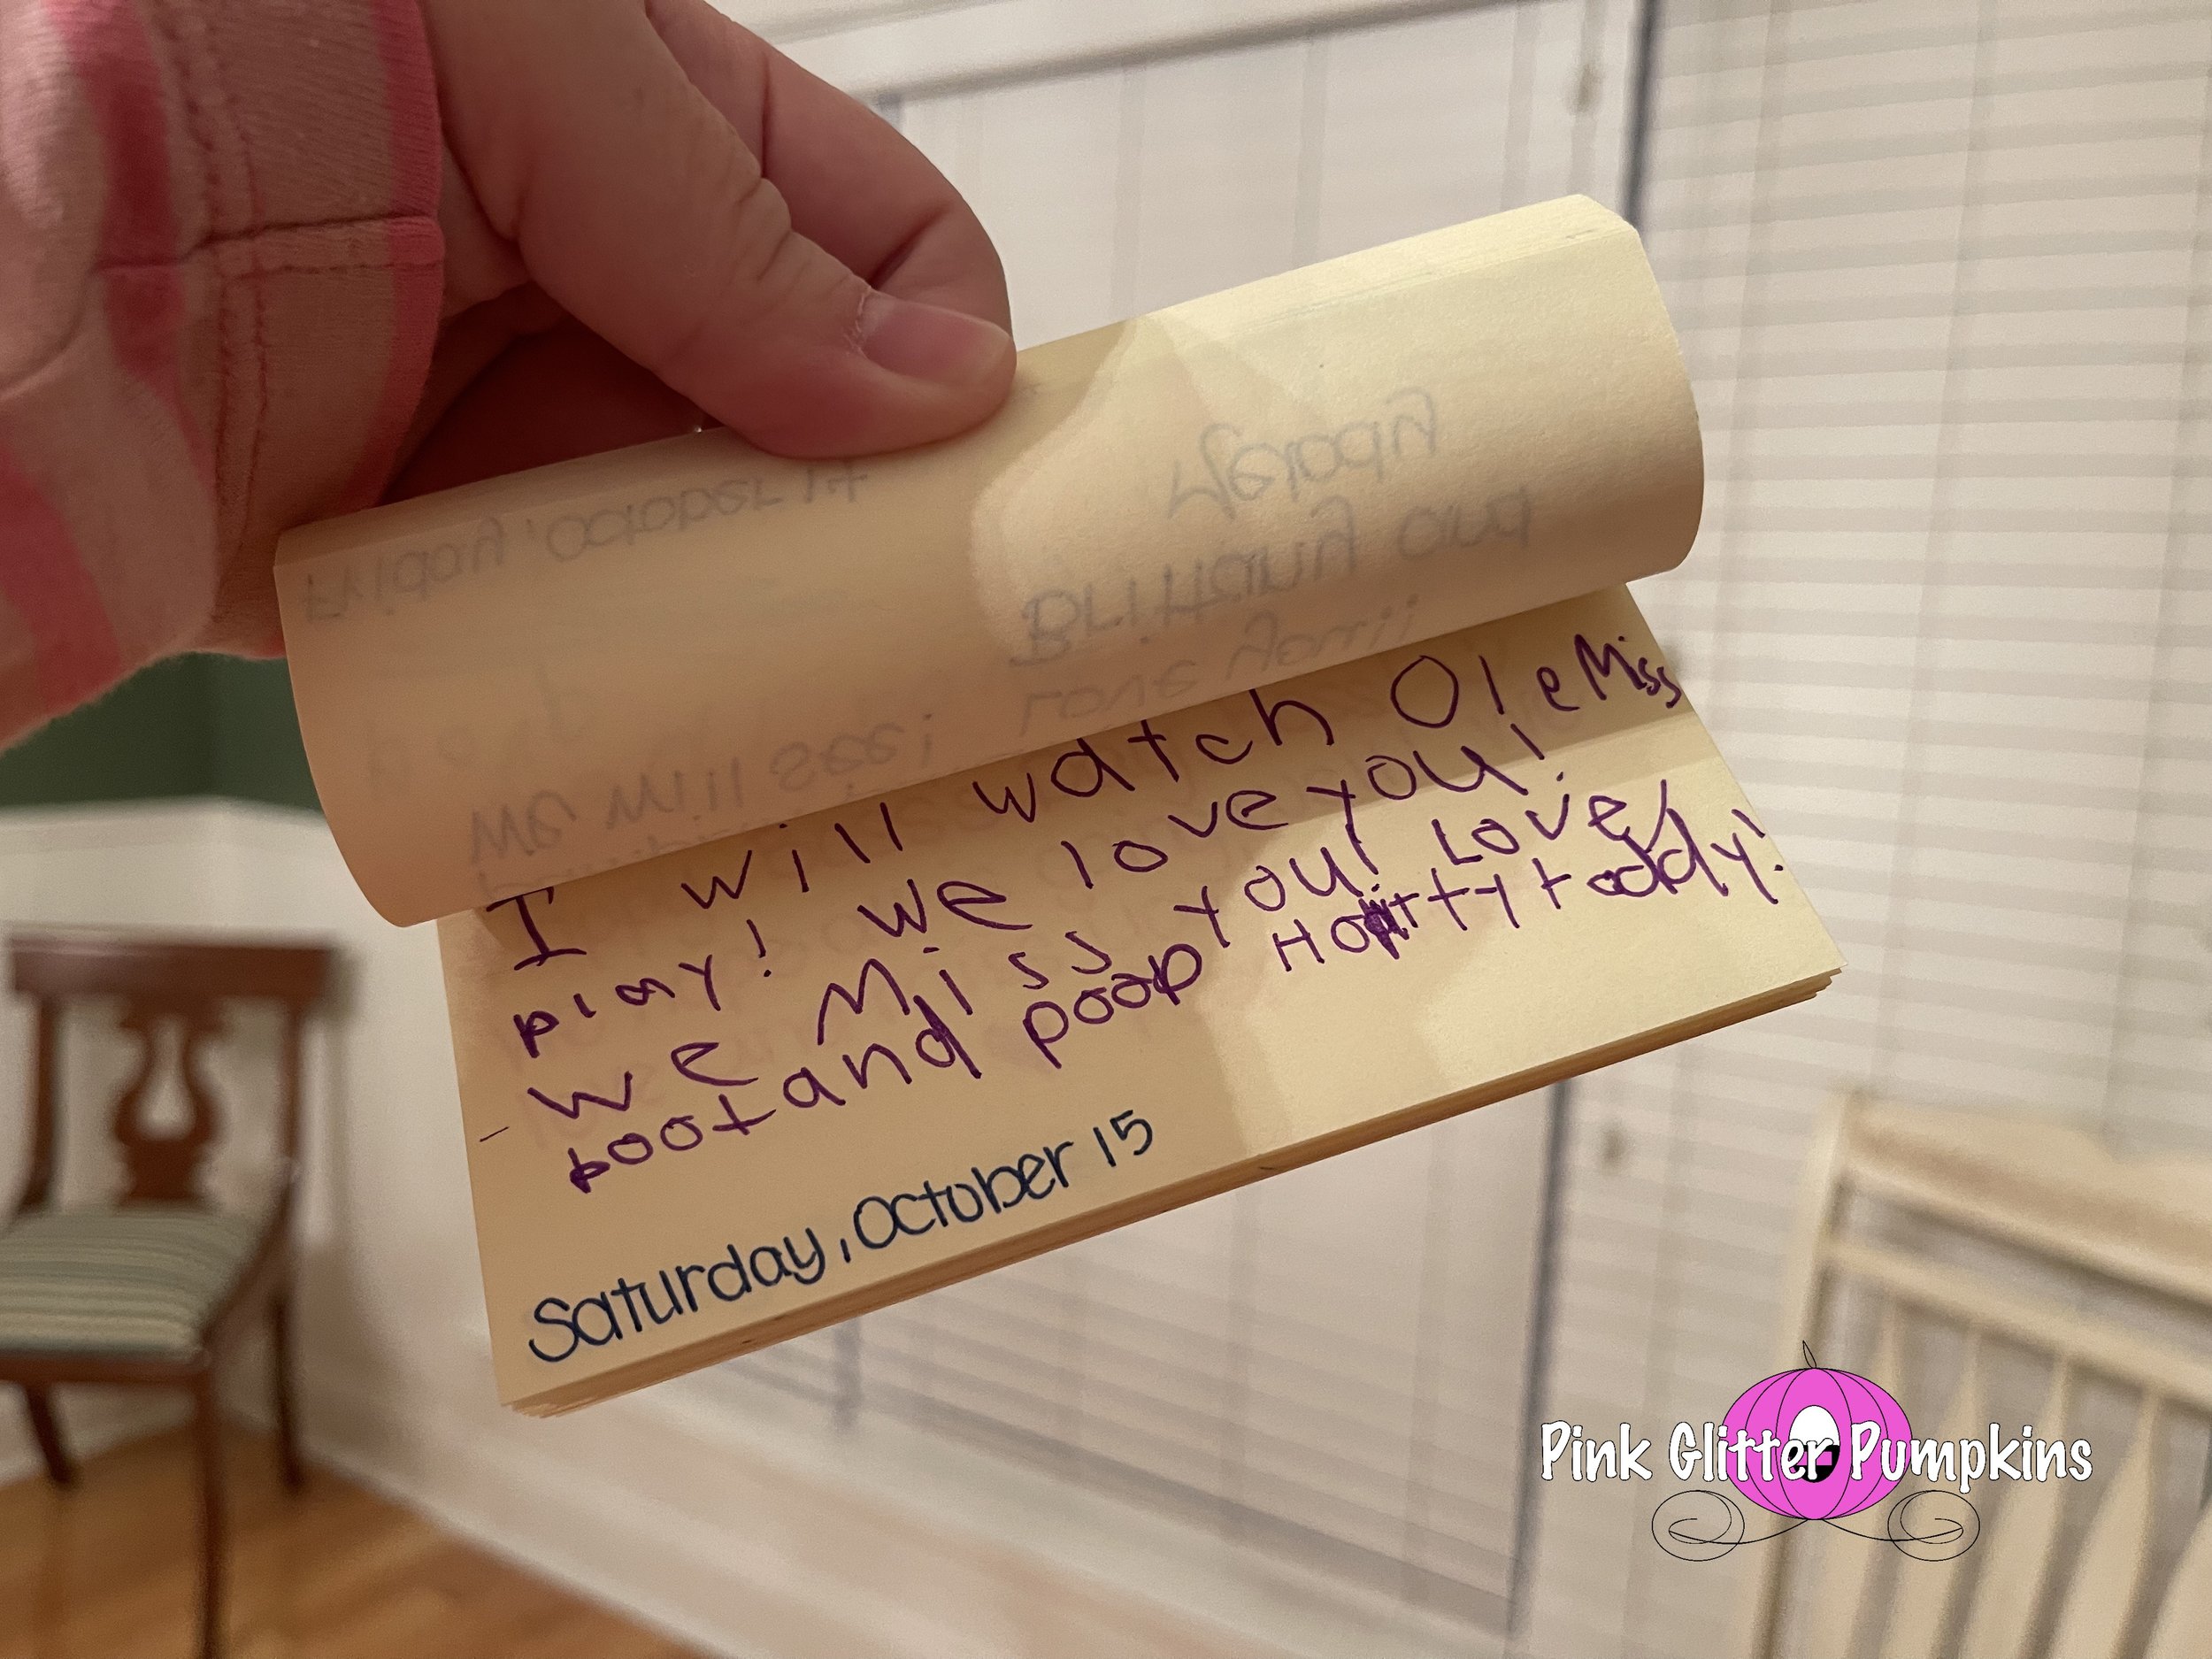 I will watch Ole Miss
play! We love you!
We Miss you! Love,
poot and poop Hotty toddy!
Saturday, October 15
Friday, October 14
We will see!
Love you!!
Brittany and
Melody
Pink Glitter Pumpkins